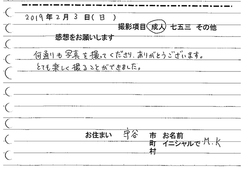 2019年2月3日(日)
撮影項目 成人 七五三 その他
感想をお願いします
何着りも写真を撮ってくださり、ありがとうございます。
とても楽しく撮ることができました。
お住まい 守谷 市 町 村 お名前 イニシャルで M.K